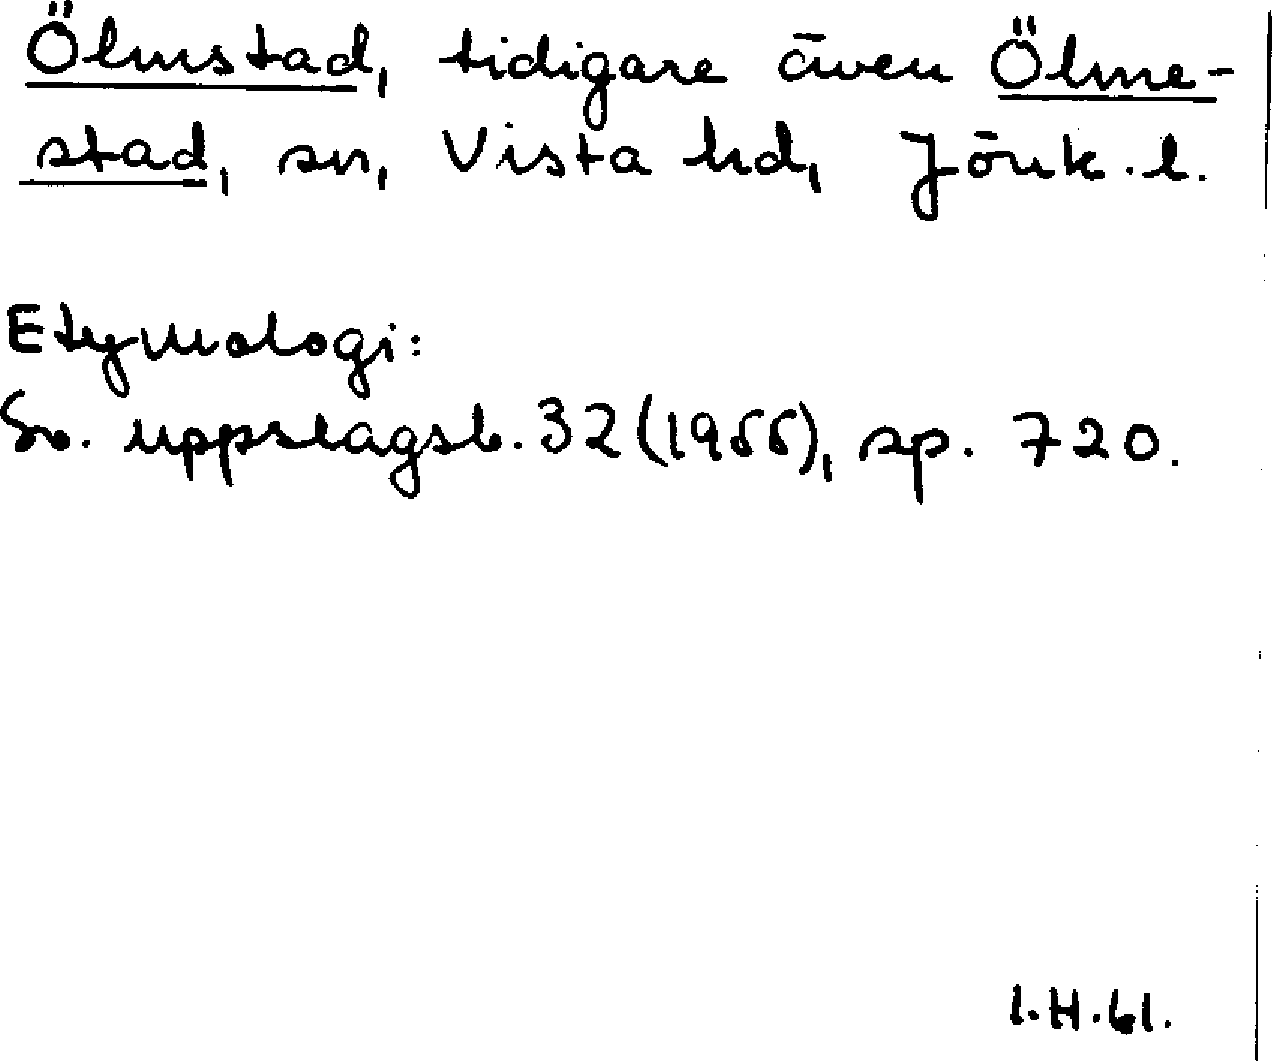 Ölmstad, tidigare även Ölme-
stad, sn, Vista hd, Jönk. l.
Etymologi:
Sv. uppslagsb. 32 (1955), sp. 720.
I.H.61.